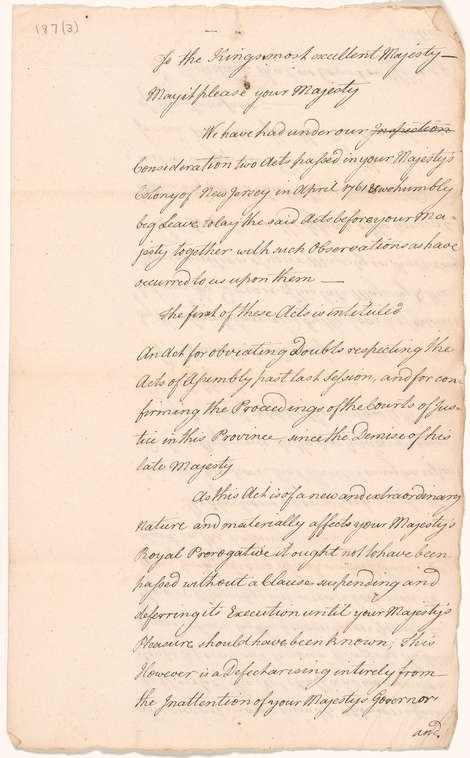 187(3)
To the Kings most excellent Majesty—
May it please your Majesty
We have had under our Inspection
Consideration two Acts passed in your Majesty's
Colony of New Jersey in April 1761 & we humbly
beg Leave to lay the said Acts before your Ma-
jesty together with such Observations as have
occurred to us upon them —
The first of these Acts is intituled
An Act for obviating Doubts respecting the
Acts of Assembly past last Session, and for con
firming the Proceedings of the Courts of Jus-
tice in this Province, since the Demise of his
late Majesty
As this Act is of a new and extraordinary
Nature and materially affects your Majesty's
Royal Prerogative it ought not to have been
passed without a Clause suspending and
deferring its Execution until your Majesty's
Pleasure should have been known; This
However is a Defect arising entirely from
the Inattention of your Majesty's Governor
and